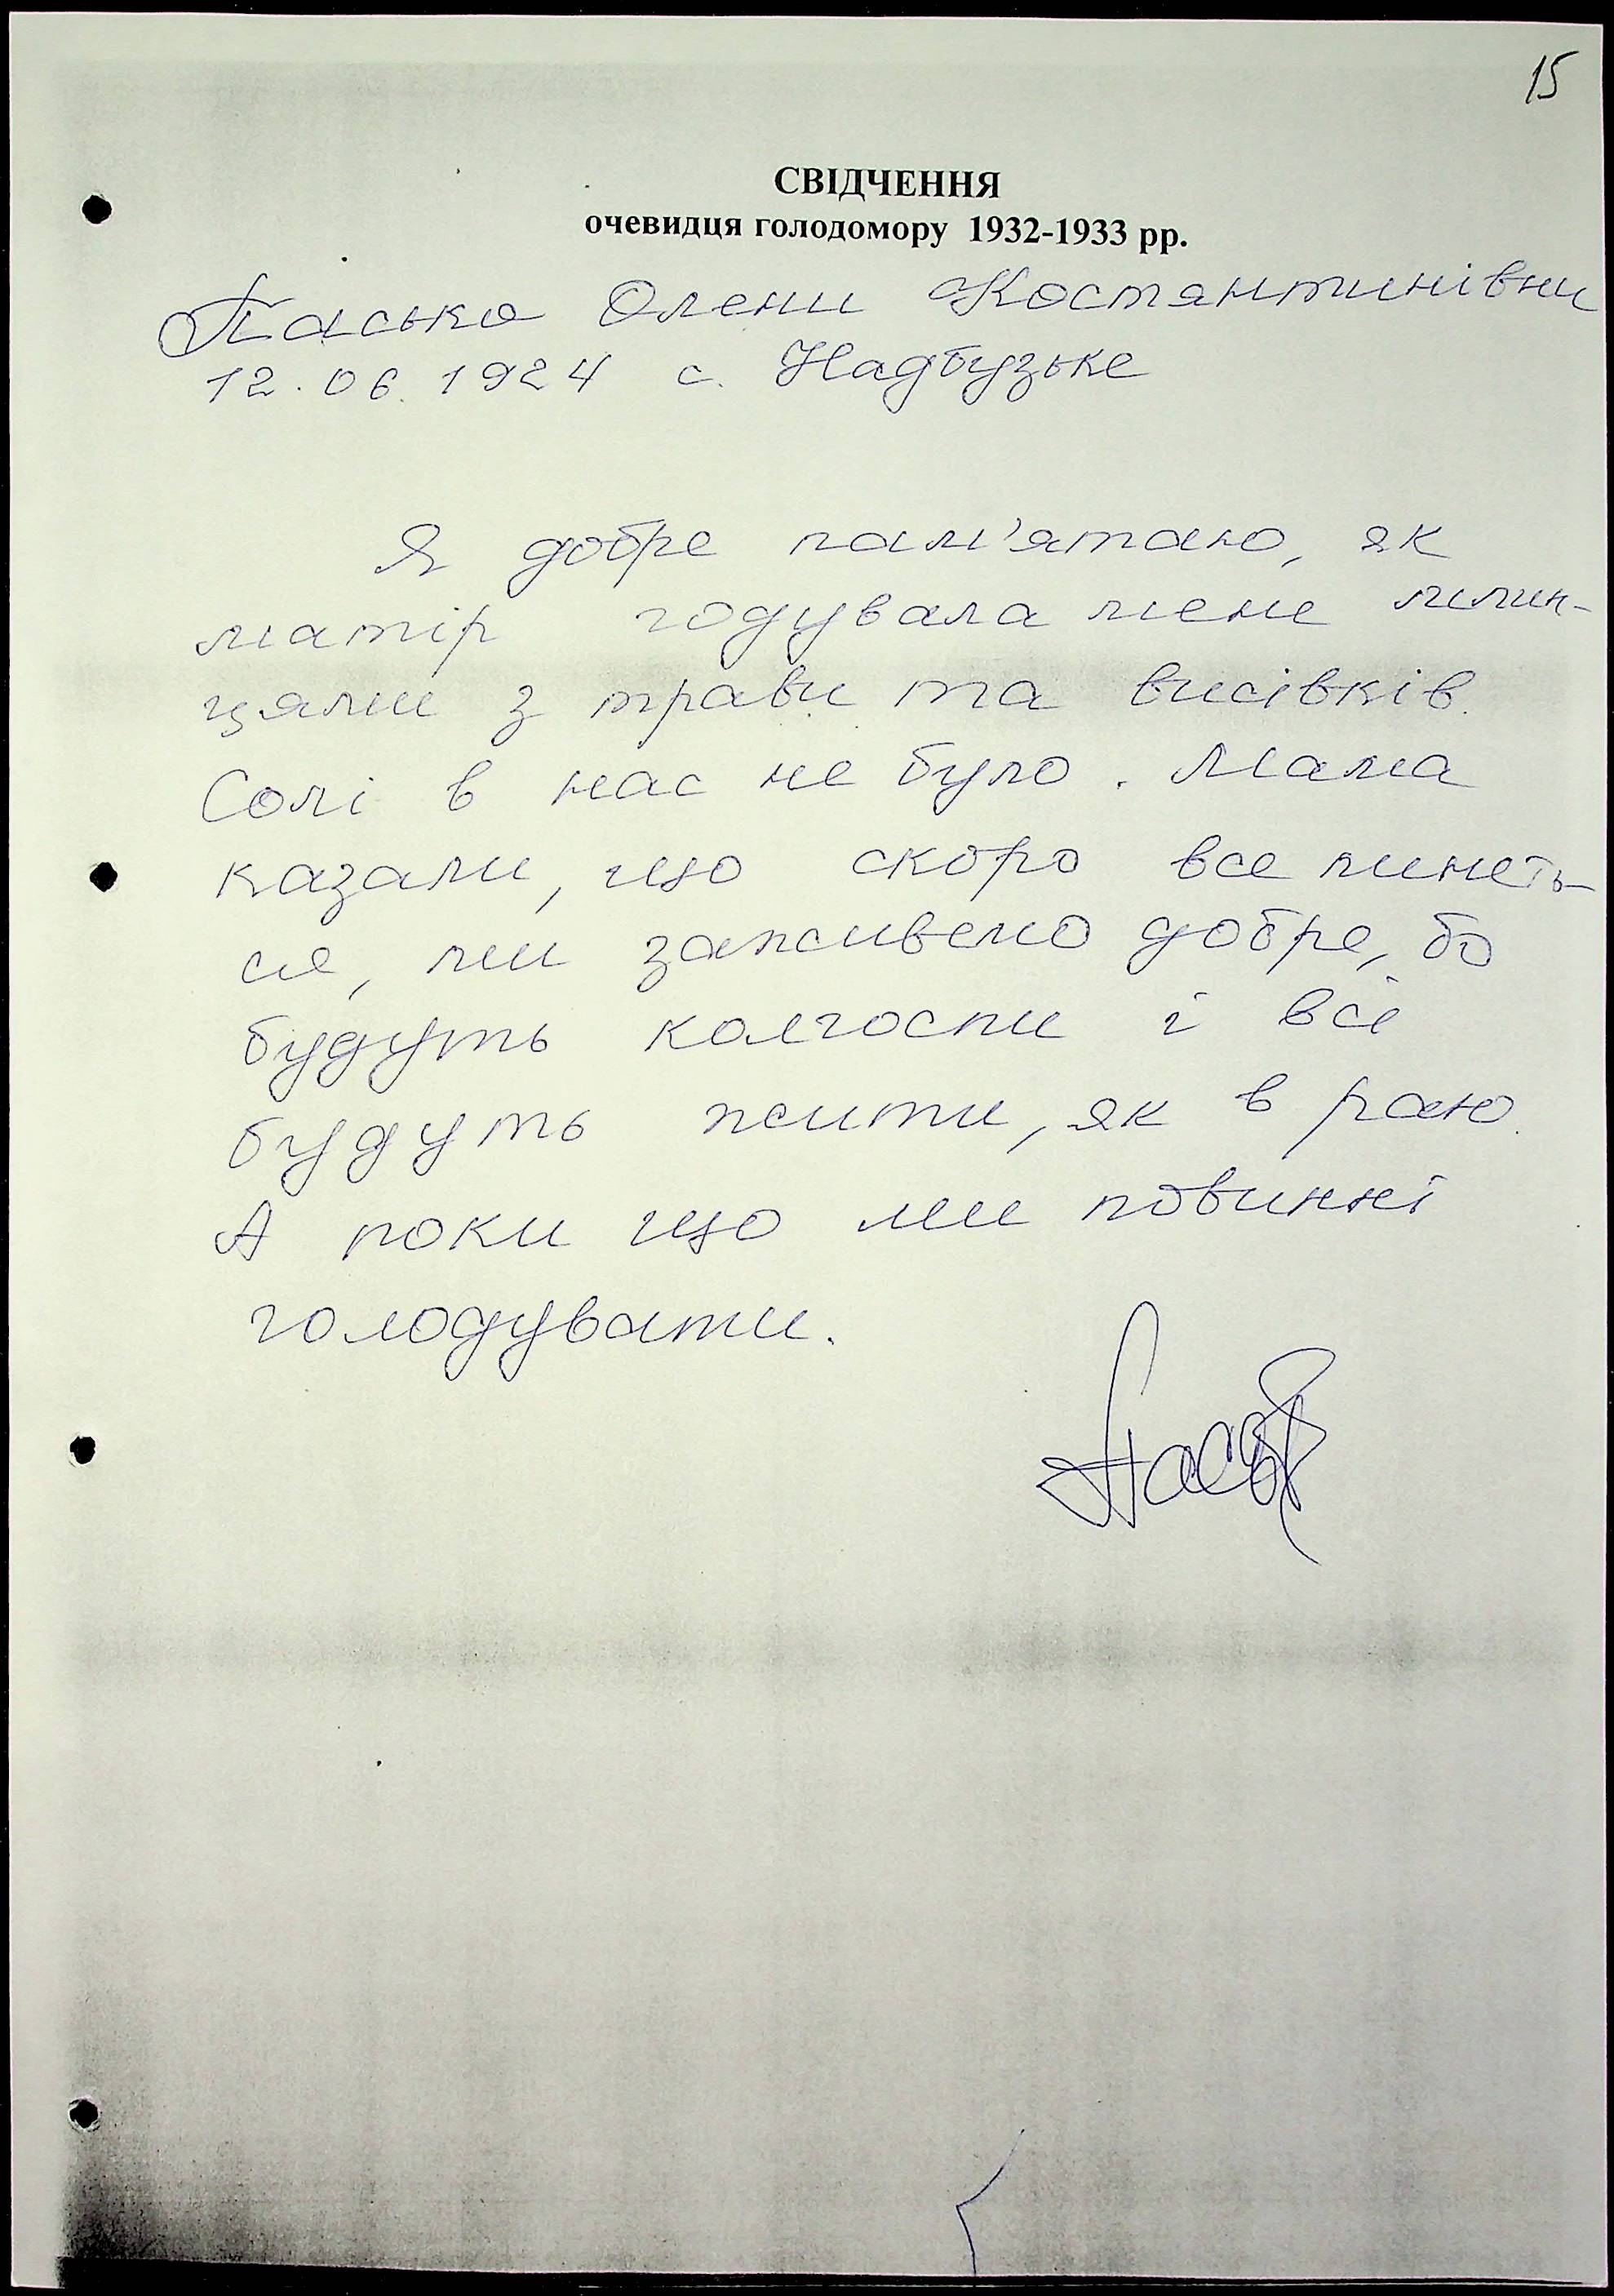 15
СВІДЧЕННЯ
очевидця голодомору 1932-1933 рр.
Пасько Олени Костянтинівни
12.06.1924 с. Надбузьке
Я добре пам'ятаю, як
матір годувала мене млин-
цями з трави та висівків.
Солі в нас не було. Мама
казали, що скоро все минеть-
ся, ми заживемо добре, бо
будуть колгоспи і всі
будуть жити, як в раю.
А поки що ми повинні
голодувати.